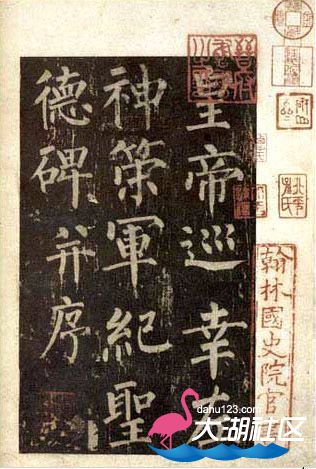 皇帝巡幸左
神策軍紀聖
德碑并序
翰林國史院官
dahu123.com
大湖社区